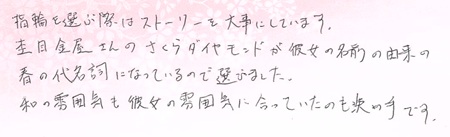 指輪を選ぶ際はストーリーを大事にしています。
杢目金屋さんのさくらダイヤモンドが彼女の名前の由来の
春の代名詞になっているので選びました。
和の雰囲気も彼女の雰囲気に合っていたのも決め手です。